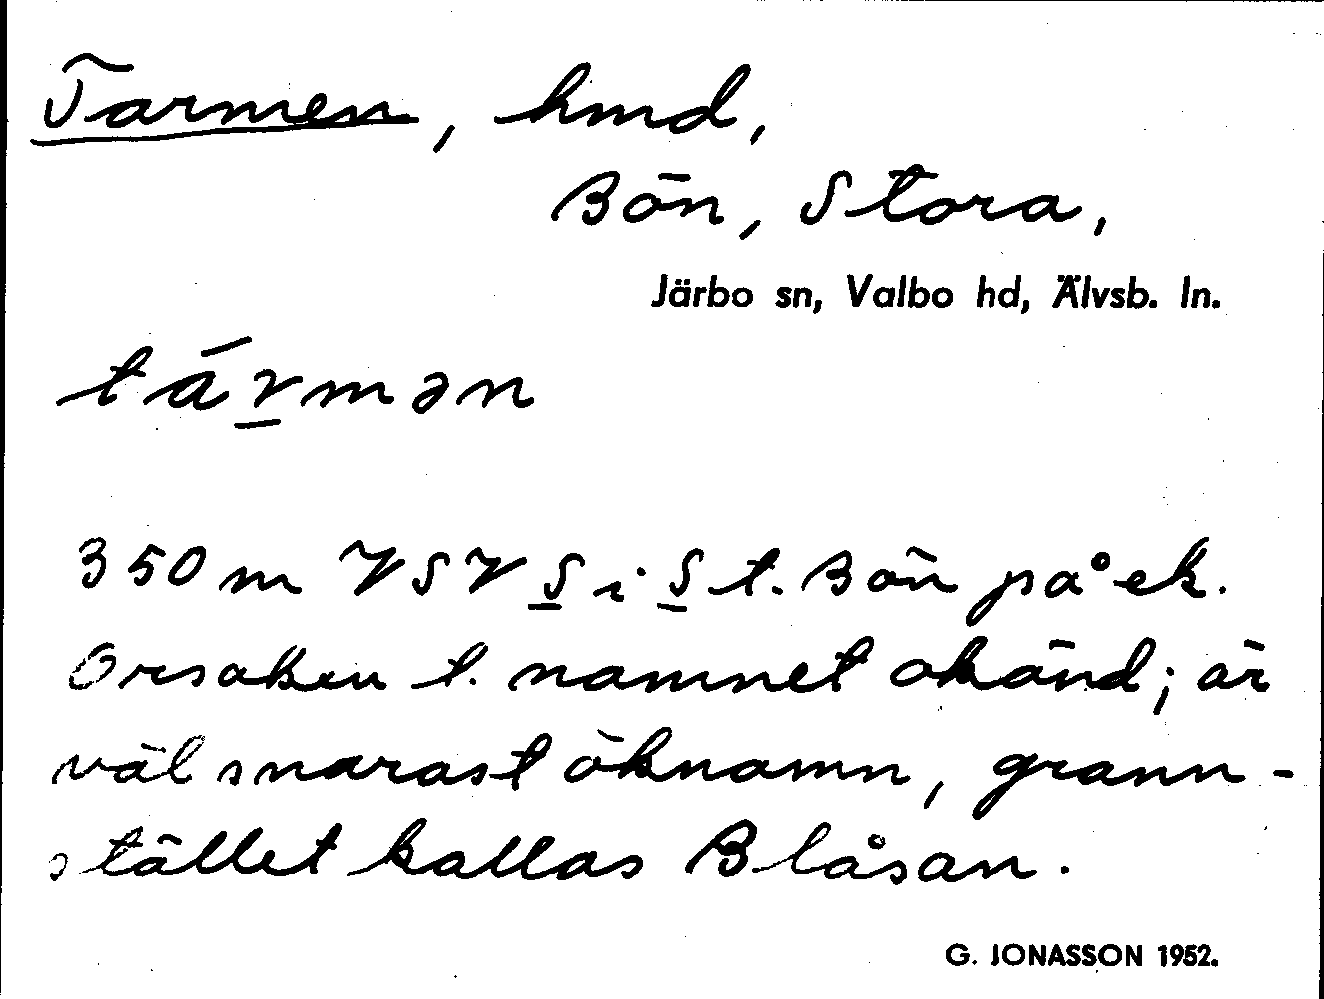 Tarmen, hmd,
Bön, Stora,
Järbo sn, Valbo hd, Älvsb. ln.
tármən
350 m VSV S i St. Bön på ek.
Orsaken t. namnet okänd; är
väl snarast öknamn, grann-
stället kallas Blåsan.
G. JONASSON 1952.